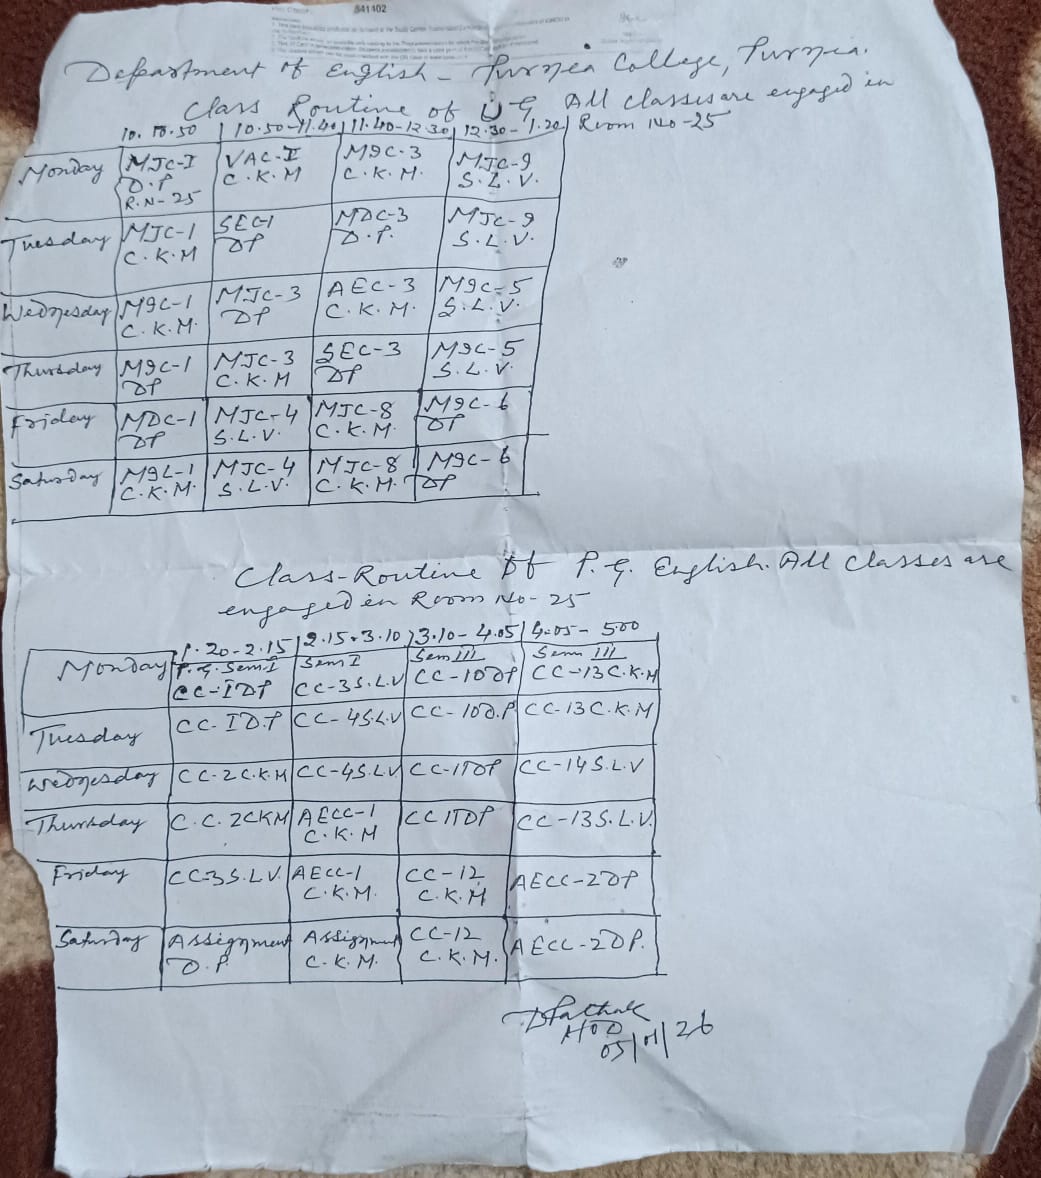 841102
Department of English - Purnea College, Purnea.
Class Routine of U G All classes are engaged in
10. 10.50 | 10.50-11.40 | 11.40-12.30 | 12.30-1.20 | Room No-25
Monday MJC-I VAC-II M9C-3 MJC-9
D.P C.K.M C.K.M. S.L.V.
R.N-25
Tuesday MJC-1 SEC-1 MDC-3 MJC-9
C.K.M DP D.P. S.L.V.
Wednesday M9C-1 MJC-3 AEC-3 M9C-5
C.K.M. DP C.K.M. S.L.V.
Thursday M9C-1 MJC-3 SEC-3 M9C-5
DP C.K.M DP S.L.V.
Friday MDC-1 MJC-4 MJC-8 M9C-6
DP S.L.V. C.K.M. DP
Saturday M9C-1 MJC-4 MJC-8 M9C-6
C.K.M. S.L.V. C.K.M. DP
Class-Routine of P.G. English. All classes are
engaged in Room No-25
1.20-2.15 | 2.15-3.10 | 3.10-4.05 | 4.05-5.00
Monday P.G. Sem I Sem I Sem III Sem III
CC-I DP CC-3 S.L.V CC-10 DP CC-13 C.K.M
Tuesday CC-I D.P CC-4 S.L.V CC-10 D.P CC-13 C.K.M
Wednesday CC-2 C.K.M CC-4 S.L.V CC-11 DP CC-14 S.L.V
Thursday C.C.2 CKM AECC-1 CC 11 DP CC-13 S.L.V.
C.K.M
Friday CC-3 S.L.V. AECC-1 CC-12 AECC-2 DP
C.K.M. C.K.M
Saturday Assignment Assignment CC-12 AECC-2 D.P.
D.P. C.K.M. C.K.M.
DPathak
HOD
05/01/26